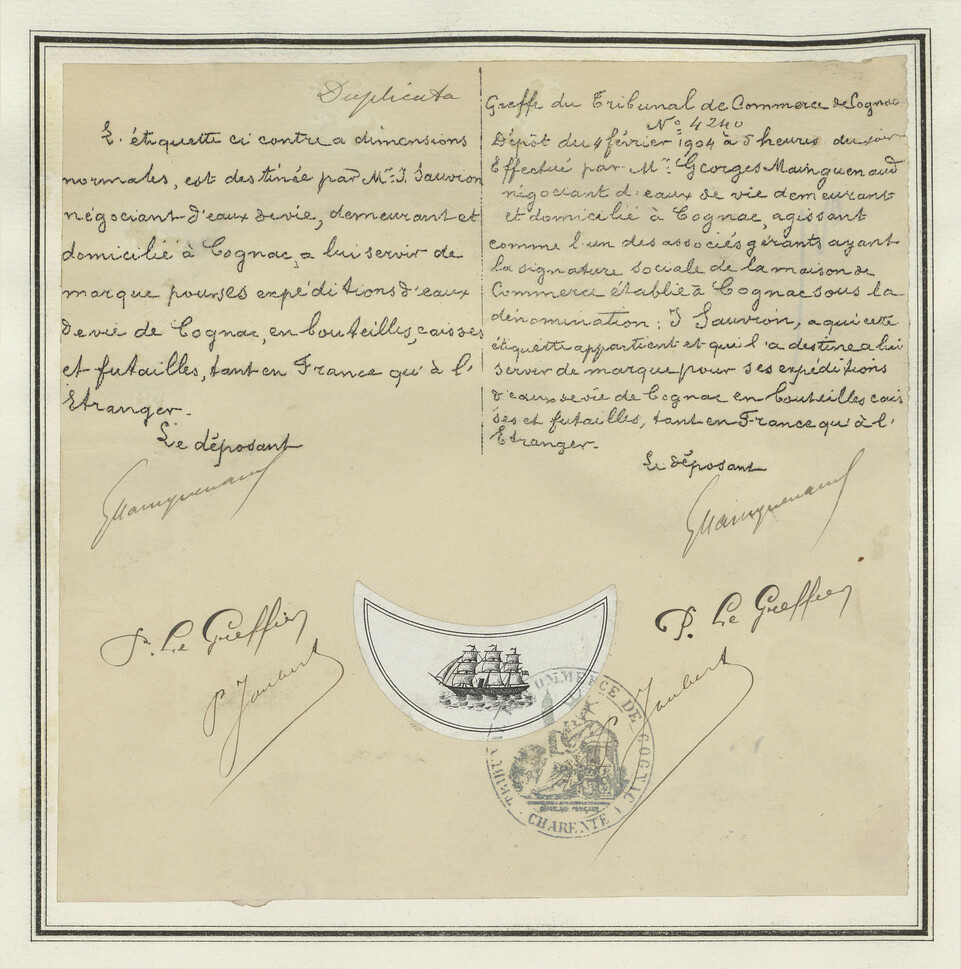 Duplicata
L'étiquette ci contre a dimensions
normales, est destinée par Mr. J. Sauvion
négociant d'eaux de vie, demeurant et
domicilié à Cognac, a lui servir de
marque pour ses expéditions d'eaux
de vie de Cognac, en bouteilles, caisses
et futailles, tant en France qu'à l'
Etranger.
Le déposant
GMainguenaud
P. Le Greffier
P Joubert
Greffe du Tribunal de Commerce de Cognac
No. 4240
Dépôt du 4 février 1904 à 5 heures du soir
Effectué par Mr. Georges Mainguenaud
négociant d'eaux de vie demeurant
et domicilié à Cognac, agissant
comme l'un des associés gérants ayant
la signature sociale de la maison de
Commerce établie à Cognac sous la
dénomination: J Sauvion, a qui cette
étiquette appartient et qui l'a destine a lui
servir de marque pour ses expéditions
d'eaux de vie de Cognac en bouteilles cais
ses et futailles, tant en France qu'à l'
Etranger.
Le déposant
GMainguenaud
P. Le Greffier
P Joubert
TRIBUNAL DE COMMERCE DE COGNAC
CHARENTE